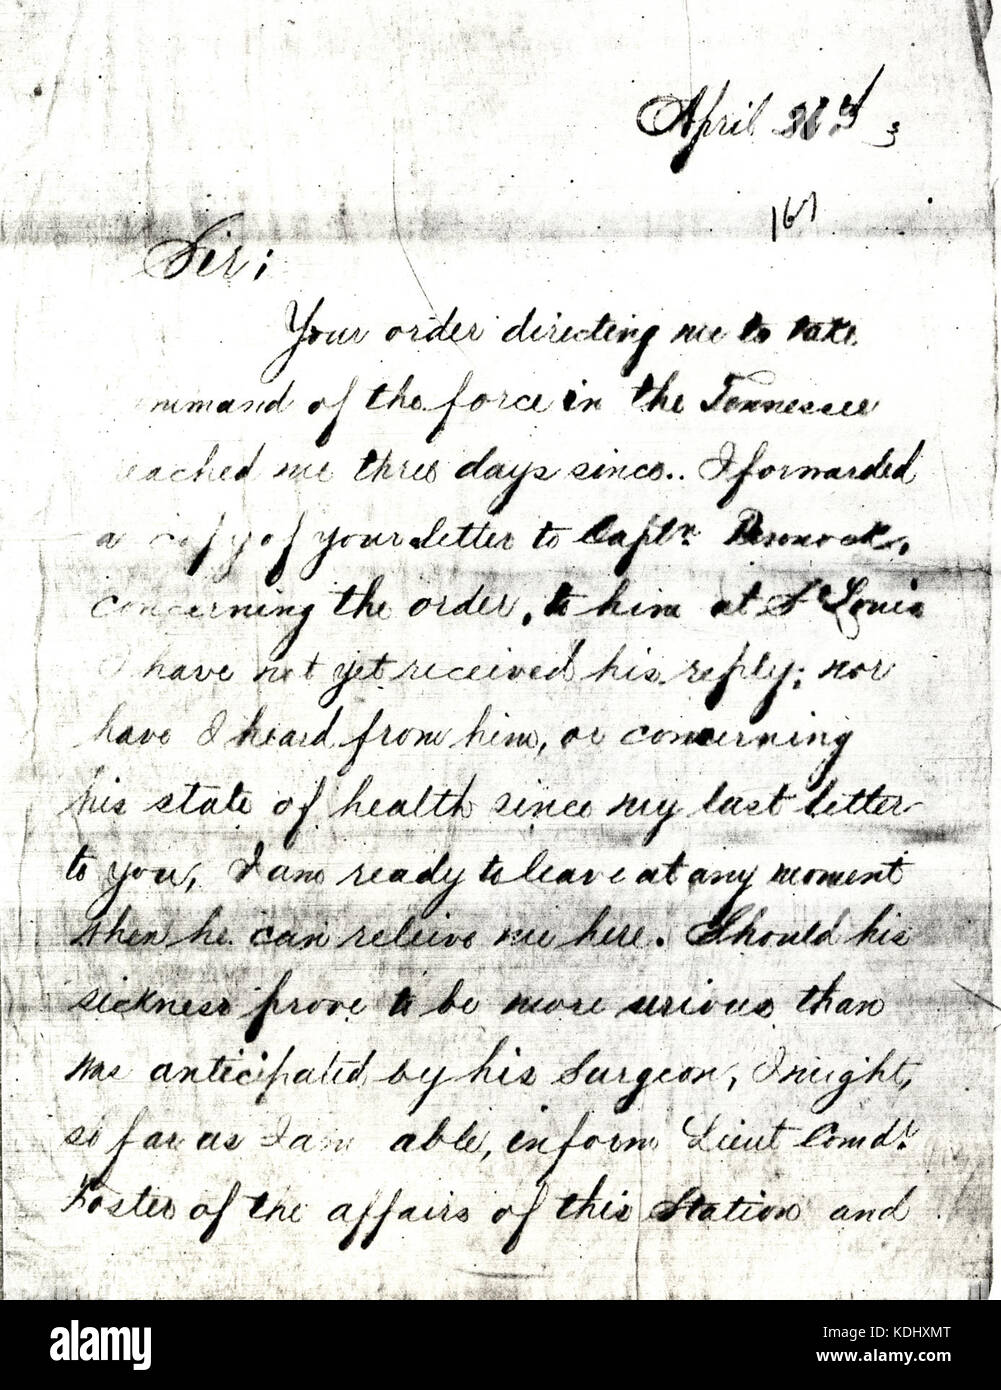 April
167
Sir;
Your order directing me to take
command of the force in the Tennessee
reached me three days since.. I forwarded
a copy of your letter to Captn. Pennock,
concerning the order, to him at St Louis
I have not yet received his reply; nor
have I heard from him, or concerning
his state of health since my last letter
to you, I am ready to leave at any moment
when he can releive me here. Should his
sickness prove to be more serious than
was anticipated by his Surgeon, I might,
so far as I am able, inform Lieut Comdr.
Foster of the affairs of this Station and
alamy
Image ID: KDHXMT
www.alamy.com